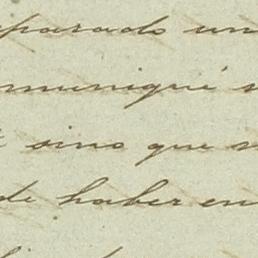 parado un
muniqué
sino que
de haber en